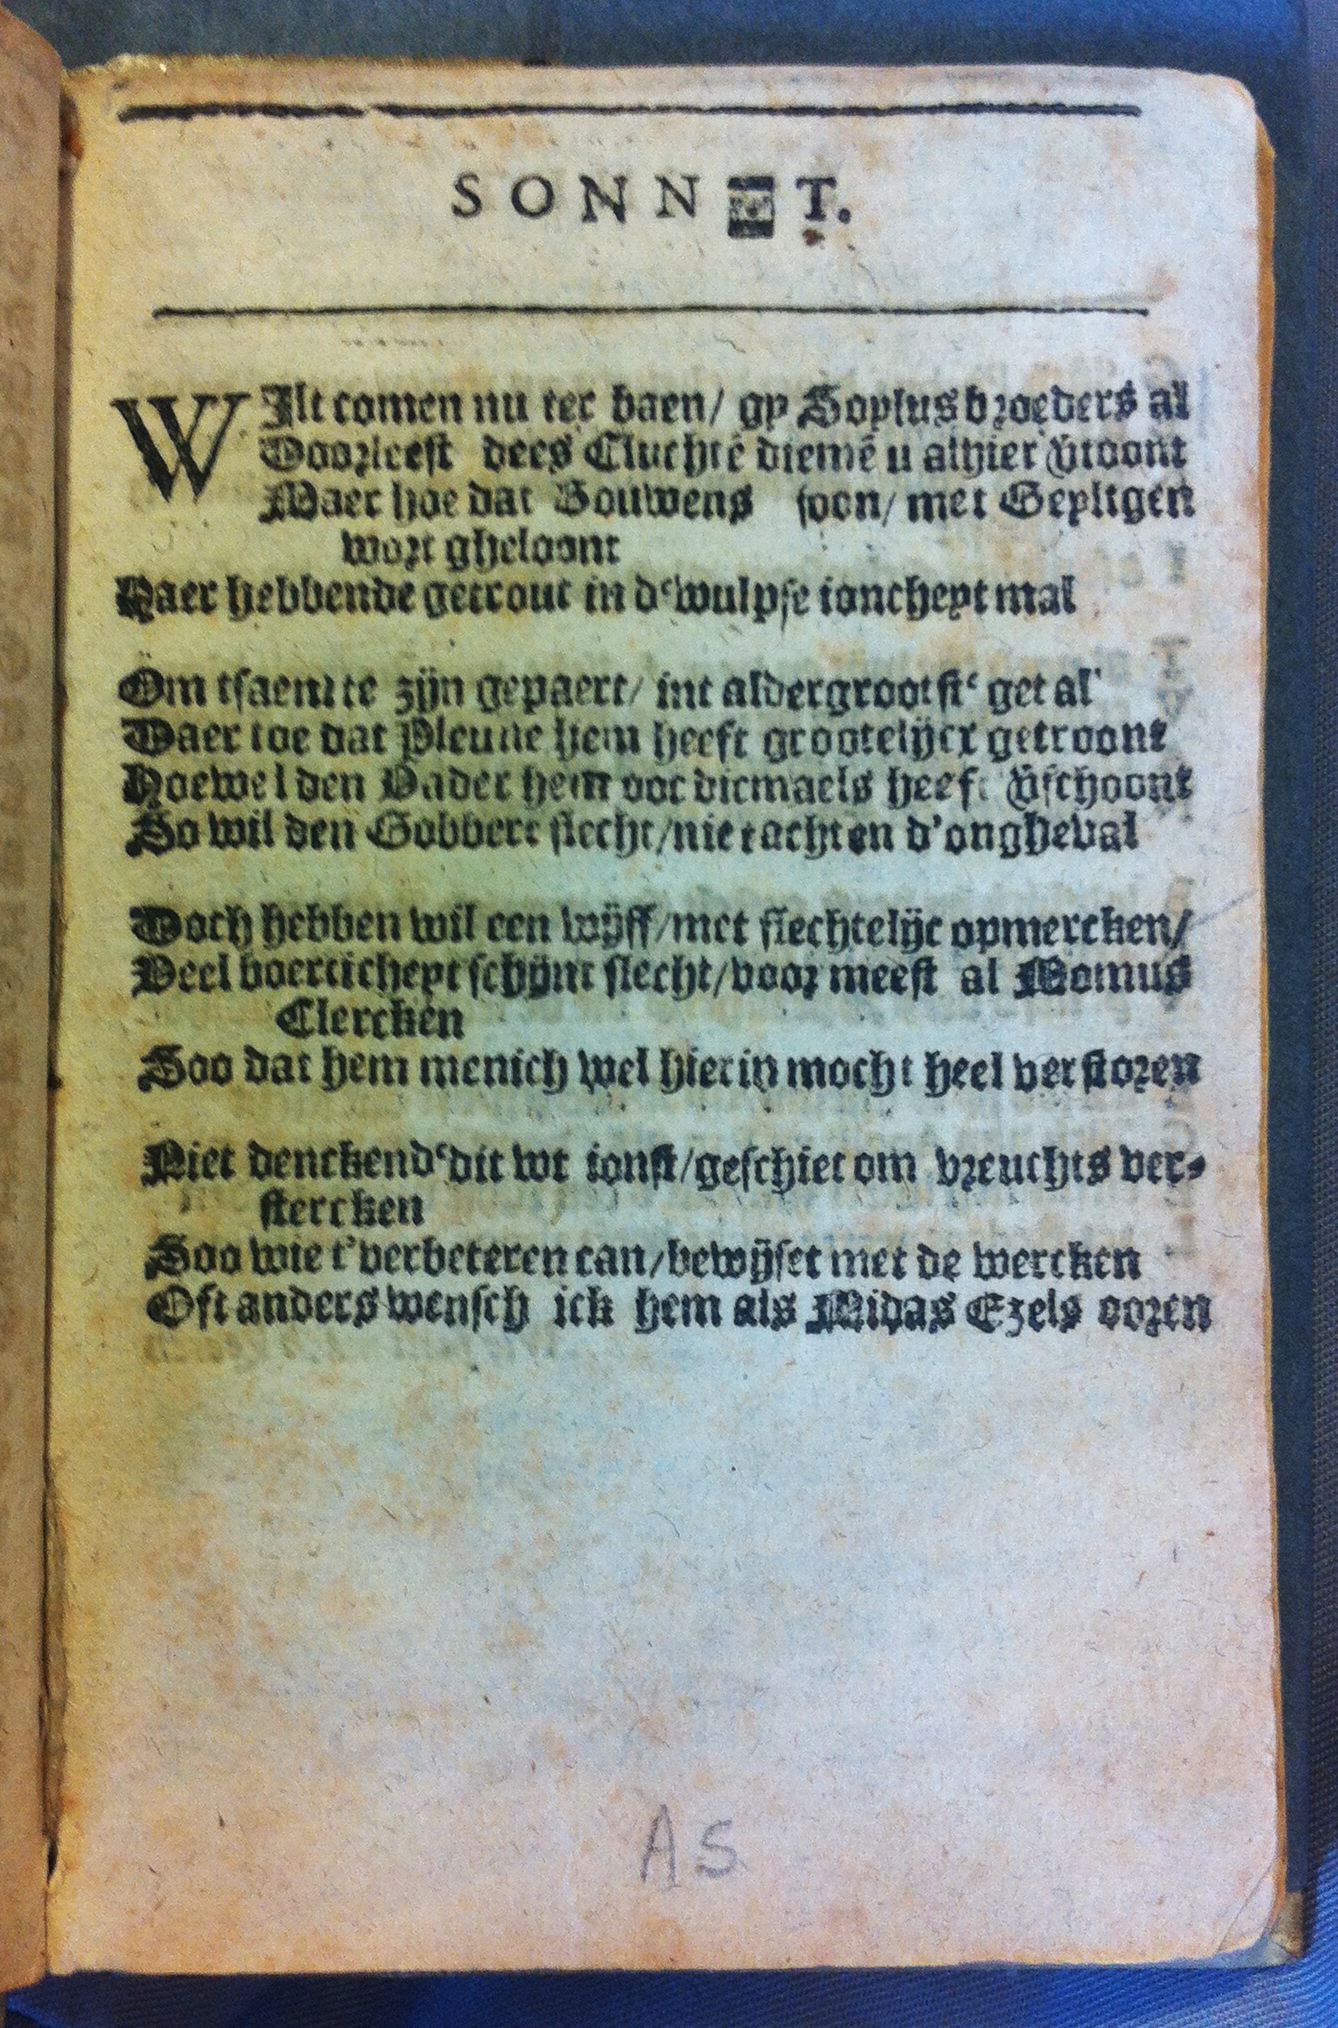 SONNET.
WIlt comen nu ter baen/ gy Soylus broeders al
Doorleest dees Cluchtē diemē u alhier v̄toont
Maer hoe dat Bouwens soon/ met Geyligen
wort gheloont
Haer hebbende getrout in d'wulpse ioncheyt mal
Om tsaem te zijn gepaert/ int aldergrootst' getal
Daer toe dat Pleune hem heeft grootelijcx getroont
Hoewel den Vader hem ooc dicmaels heeft v̄schoont
So wil den Gobbert slecht/niet achten d'ongheval
Doch hebben wil een wijff/met slechtelijc opmercken/
Veel boerticheyt schijnt slecht/voor meest al Momus
Clercken
Soo dat hem menich wel hierin mocht heel verstoren
Niet denckend' dit wt ionst/geschiet om vreuchts ver-
stercken
Soo wie t'verbeteren can/bewijset met de wercken
Oft anders wensch ick hem als Midas Ezels ooren
A5